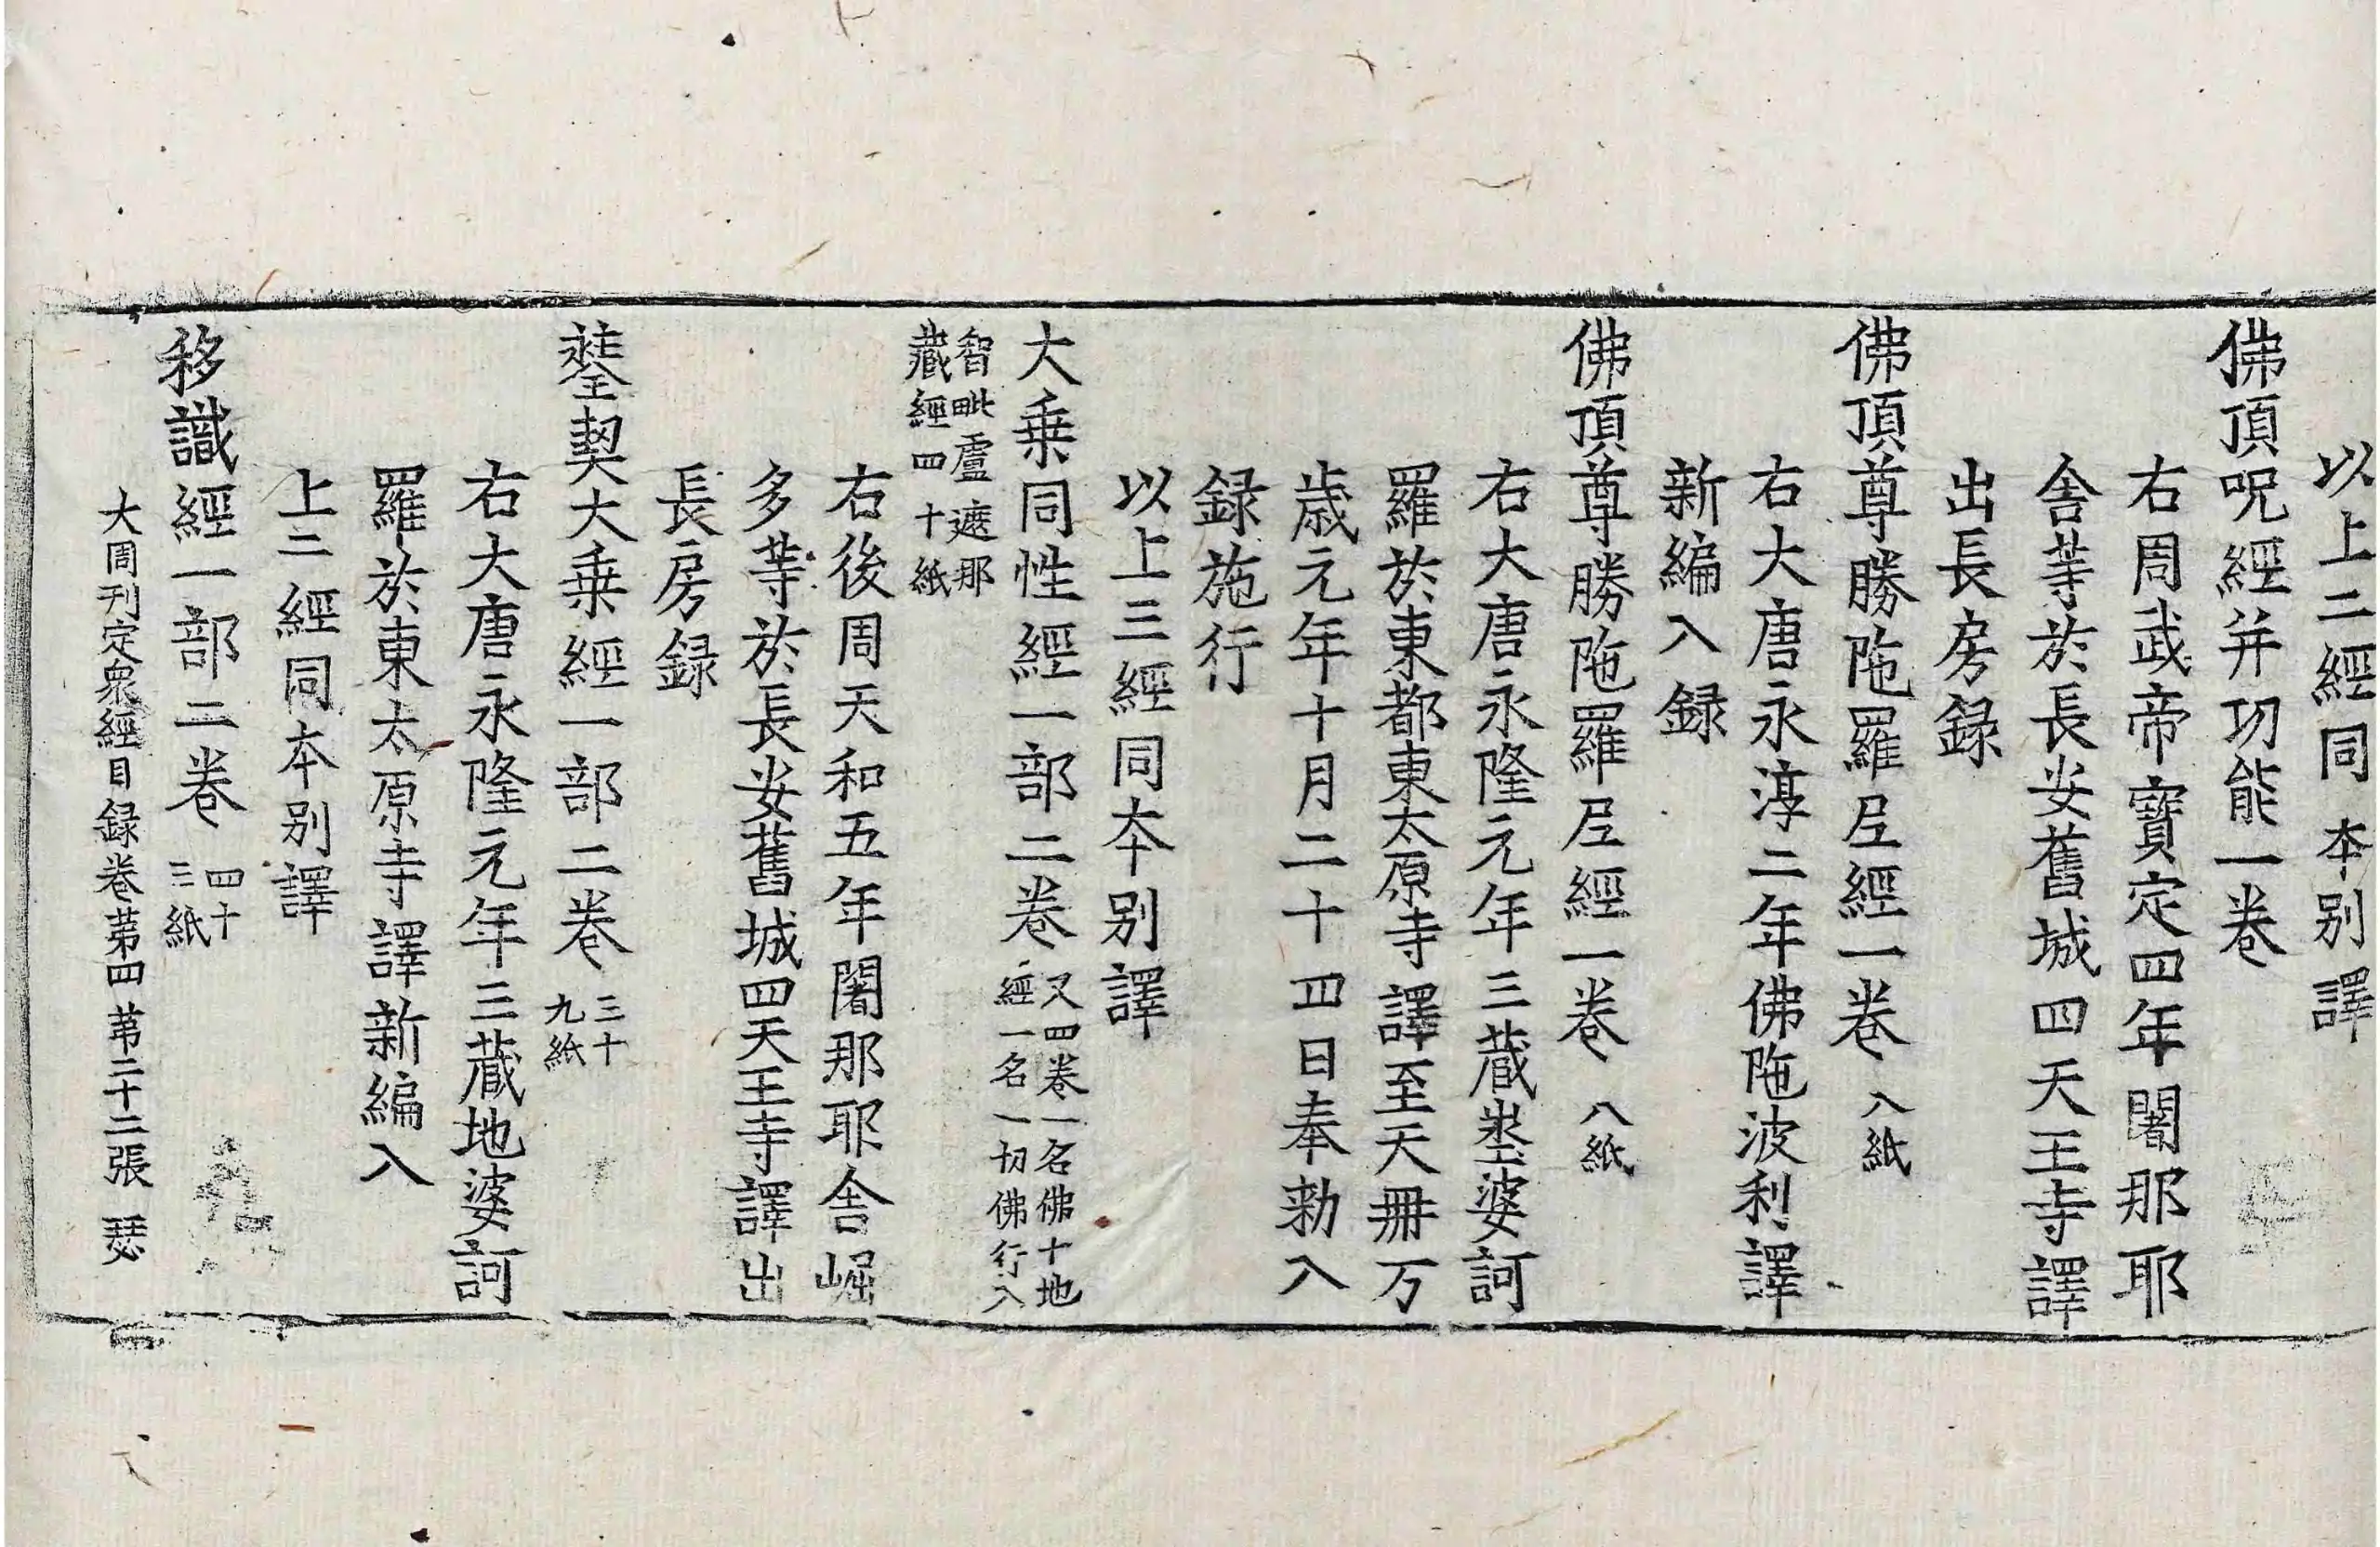 以上二經同本別譯
佛頂呪經并功能一卷
右周武帝寶定四年闍那耶
舍等於長安舊城四天王寺譯
出長房録
佛頂尊勝陁羅尼經一卷 八紙
右大唐永淳二年佛陁波利譯
新編入録
佛頂尊勝陁羅尼經一卷 八紙
右大唐永隆元年三藏埊婆訶
羅於東都東太原寺譯至天冊万
歳元年十月二十四日奉勑入
録施行
以上三經同本別譯
大乗同性經一部二卷 又四卷一名佛十地
經一名一切佛行入
智毗盧遮那
藏經四十紙
右後周天和五年闍那耶舍崛
多等於長安舊城四天王寺譯出
長房録
𨭻契大乗經一部二卷 三十
九紙
右大唐永隆元年三藏地婆訶
羅於東太原寺譯新編入
上二經同本別譯
移識經一部二卷 四十
三紙
大周刊定衆經目録卷苐四 苐二十二張 瑟